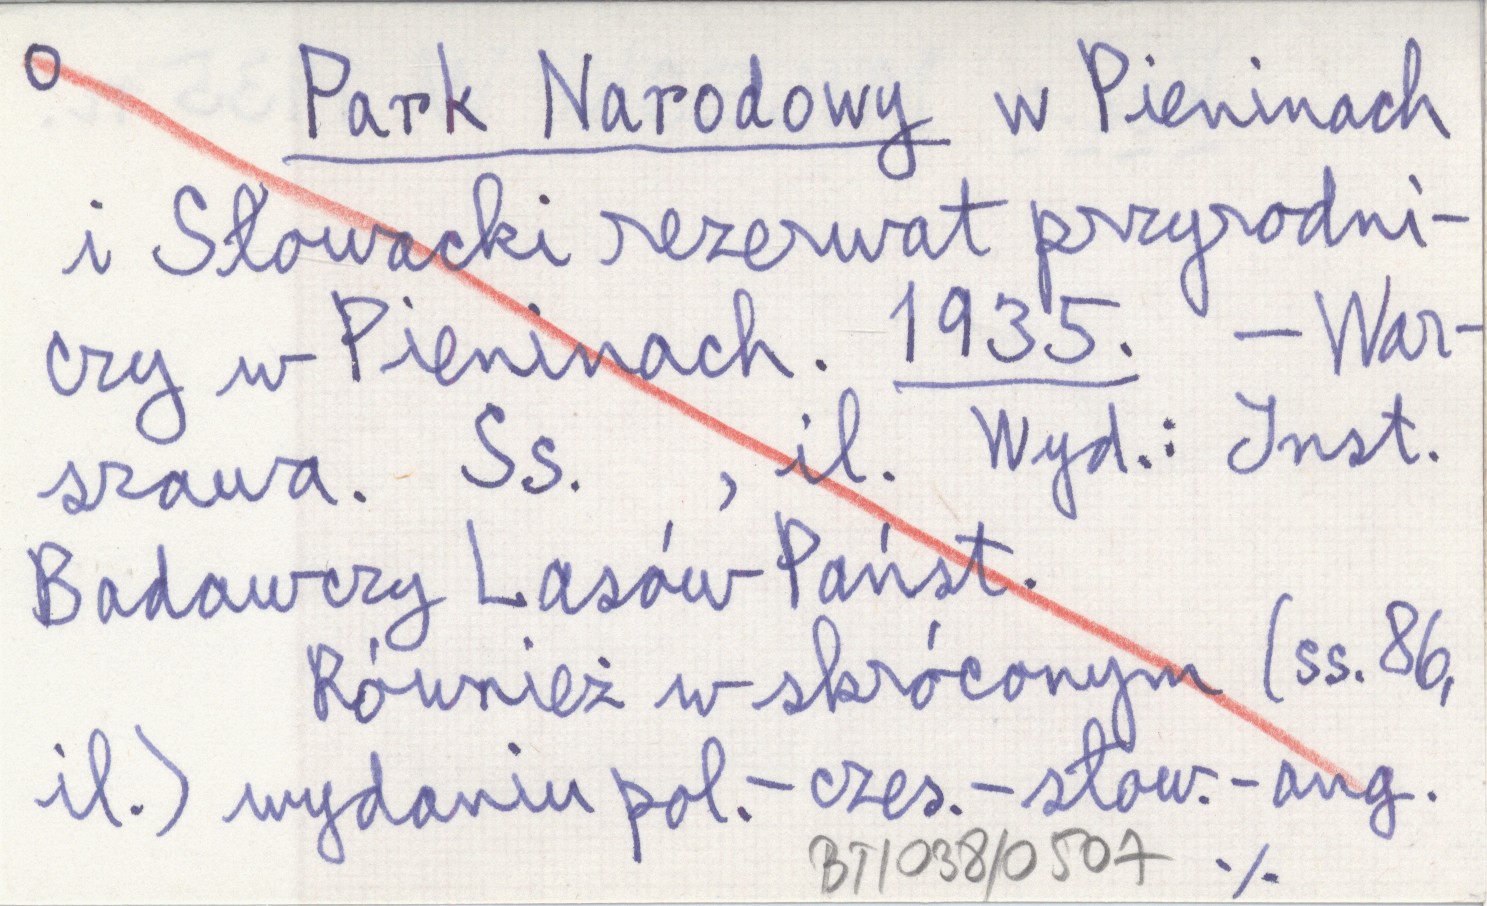 o Park Narodowy w Pieninach
i Słowacki rezerwat przyrodni-
czy w Pieninach. 1935. – War-
szawa. Ss. , il. Wyd.: Inst.
Badawczy Lasów Państ.
Również w skróconym (ss. 86,
il.) wydaniu pol.-czes.-słow.-ang.
BT/038/0507 ./.